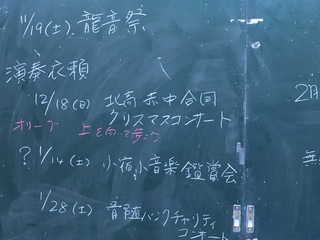 11/19(土). 龍音祭
演奏依頼
12/18(日) 北高 赤中合同
クリスマスコンサート
オリーブ 上を向いて歩こう
? 1/14(土) 小宿小音楽鑑賞会
1/28(土) 骨髄バンクチャリティ
コンサート
2月